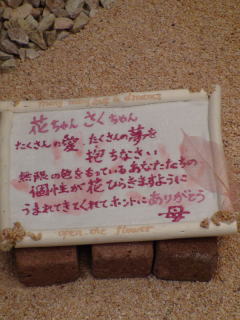 花ちゃん さくちゃん
たくさんの愛、たくさんの夢を
抱ちなさい
無限の色をもっているあなたたちの
個性が花ひらきますように
うまれてきてくれてホントにありがとう
母
open the flower